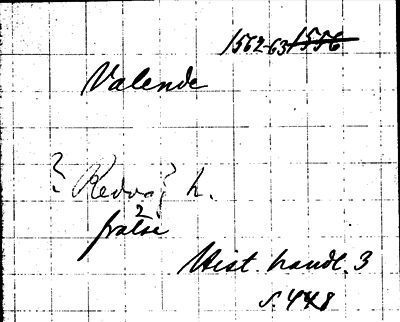 1562-63 1556
Valende
? Redvg? h.
2
frälse
Hist. handl. 3
s. 448